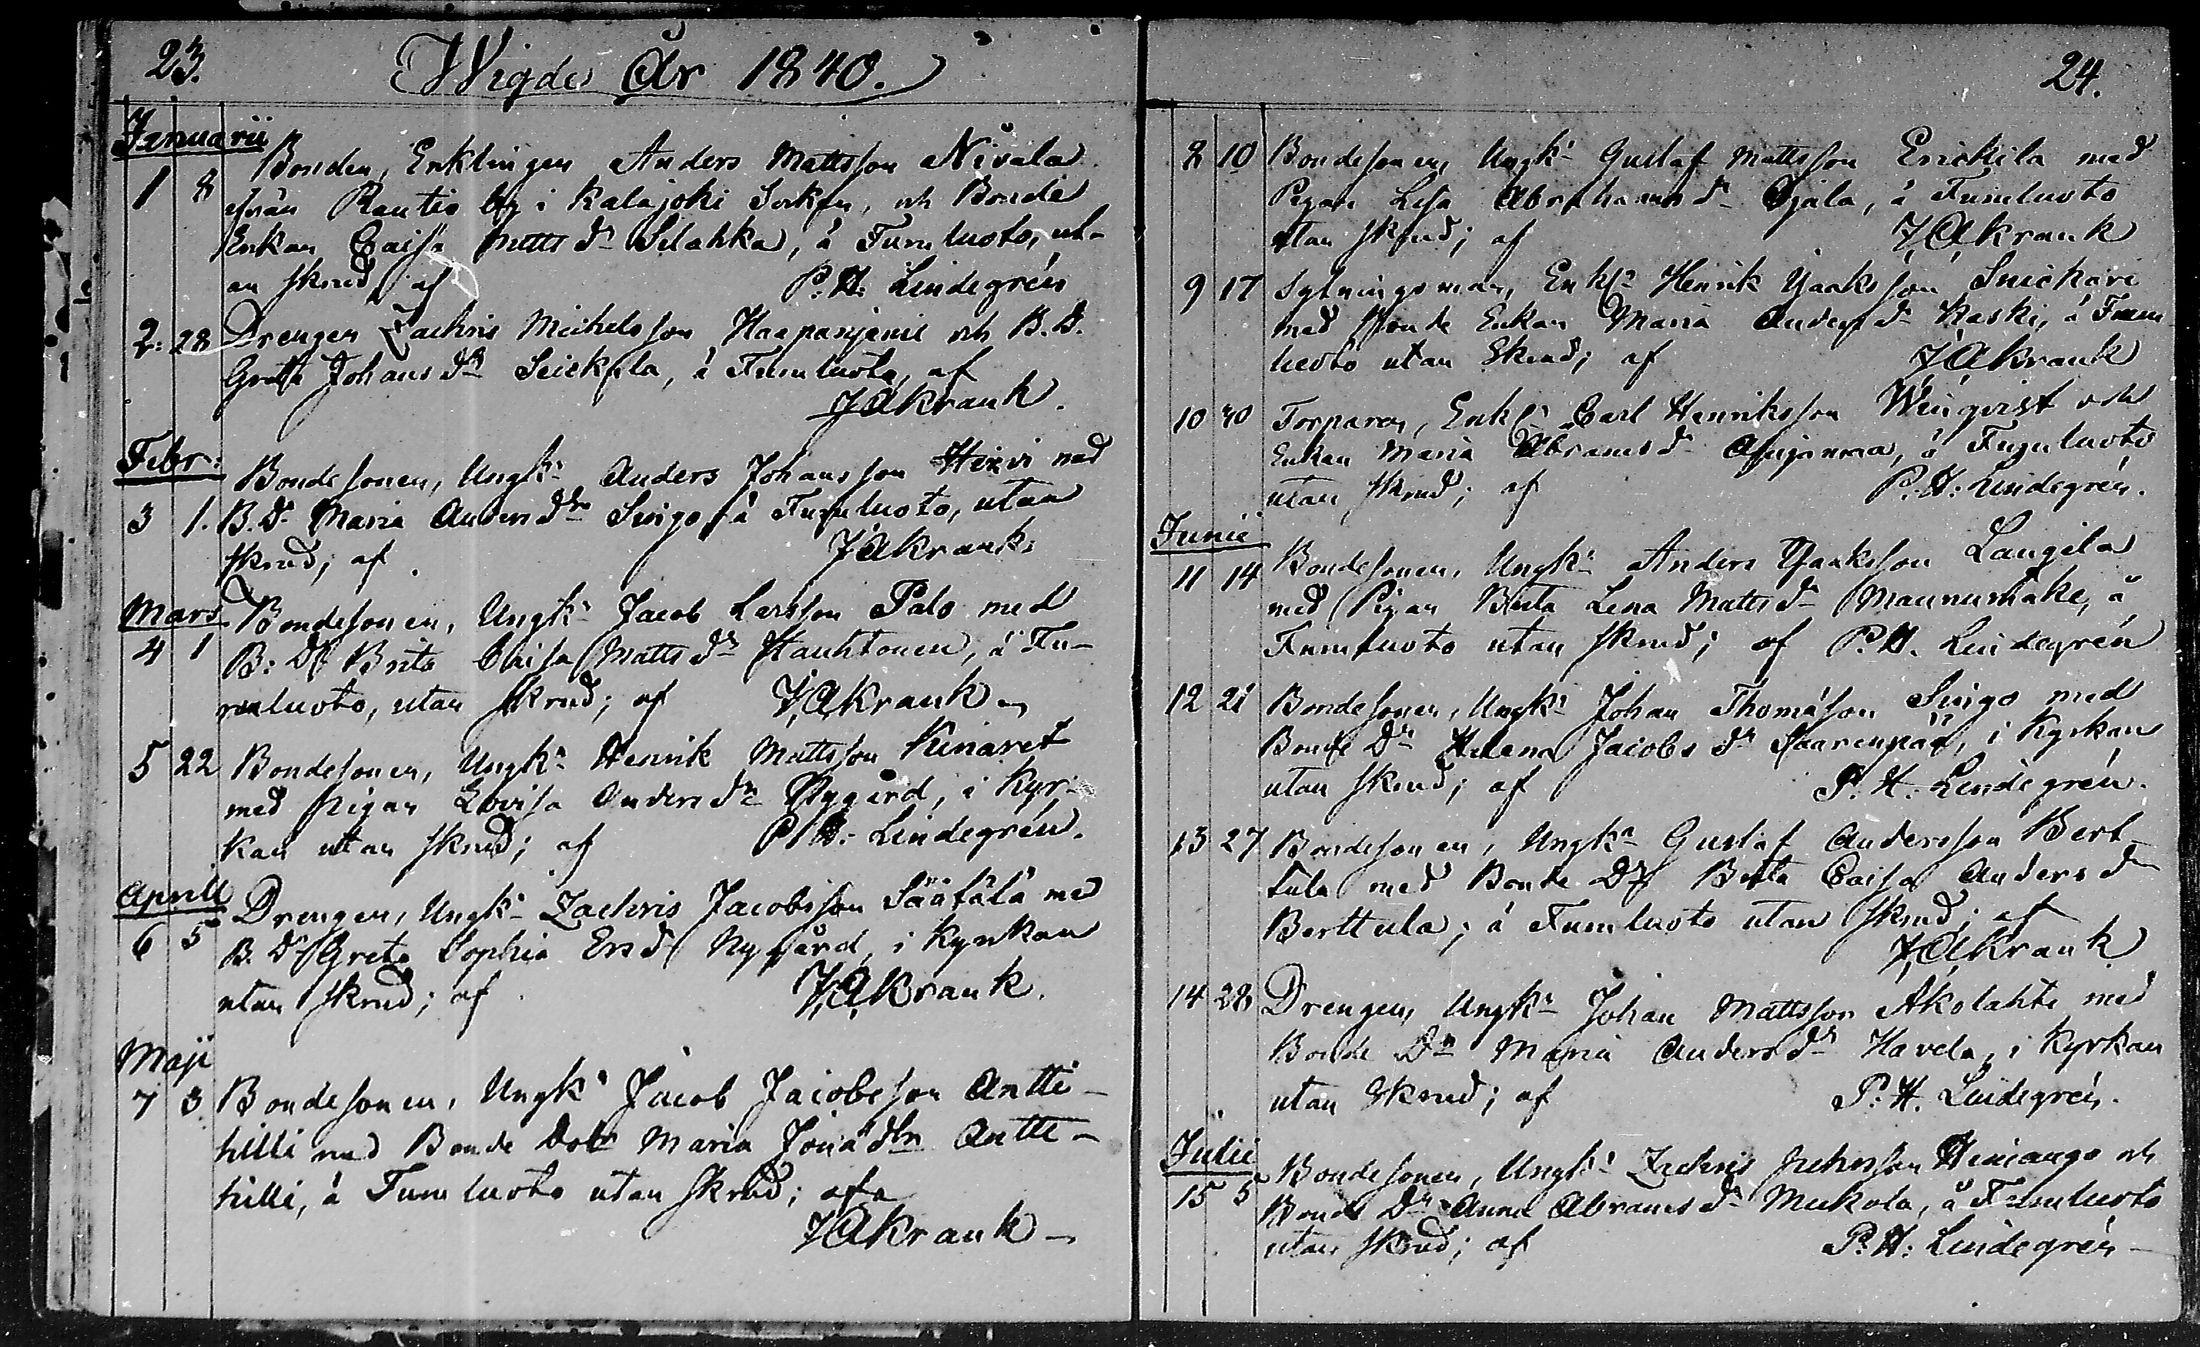 23.
Wigde År 1840.
Januarii
Bonden, Enklingen Anders Mattsson Nivala
1 8 från Rautio by i Kalajoki Sokn, och Bonde
Enkan Caisa Matts dr Selahka, å Tumluoto, ut-
an skrud, af P. H. Lindegrén
2. 28 Drengen Zachris Michelsson Haapanjemi och B. D.
Greta Johans dr Seickala, å Tumluoto, af
J A Krank.
Febr:
Bondesonen, Ungk: Anders Johansson Hirvi med
3 1. B. Dr Maria Anders dr Singo å Tumluoto, utan
skrud; af J A Krank
Mars Bondesonen, Ungk: Jacob Larsson Palo med
4 1 B: Dr Brita Caisa Matts dr Hauhtonen, å Tu-
mluoto, utan skrud; af J A Krank
5 22 Bondesonen, Ungk: Henrik Mattsson Kinaret
med pigan Lovisa Anders dr Nygård, i Kyr-
kan utan skrud; af P. H: Lindegrén.
Aprill Drengen, Ungk: Zachris Jacobsson Säätälä med
6 5 B. Dr Greta Sophia Ers dr Nygård, i Kyrkan
utan skrud; af J A Krank.
Maji
7 3 Bondesonen, Ungk: Jacob Jacobsson Antti-
hilli med Bonde Dotr Maria Jona dtr Antti-
hilli, å Tumluoto utan skrud; af
J A Krank
24.
8 10 Bondesonen, Ungk: Gustaf Mattsson Erickila med
Pigan Lisa Abrahams dr Ojala, å Tumluoto
utan skrud; af J A Krank
9 17 Sytningsman, Enkl: Henrik Isaksson Snickari
med Bonde Enkan Maria Anders dr Kaski, å Tum
luoto utan skrud; af J A Krank
10 40 Torparen, Enkl: Carl Henriksson Winqvist och
Enkan Maria Abrams dr å Tumluoto
utan skrud; af P. H: Lindegrén.
Junii
11 14 Bondesonen, Ungk: Anders Isaksson Laugila
med Pigan Brita Lena Matts dr Maunumäke, å
Tumluoto utan skrud; af P. H. Lindegrén
12 21 Bondesonen, Ungk: Johan Thomasson Singo med
Bonde Dr Helena Jacobs dr Saarenpää, i Kyrkan
utan skrud; af P. H. Lindegrén.
13 27 Bondesonen, Ungk: Gustaf Andersson Bert-
tula med Bonde Dr Brita Caisa Anders dr
Berttula; å Tumluoto utan skrud; af
J A Krank
14 28 Drengen, Ungk: Johan Mattsson Akolahti med
Bonde Dr Maria Anders dr Havela, i Kyrkan
utan skrud; af P. H. Lindegrén.
Julii
Bondesonen, Ungk: Zachris Hiniango och
15 5 Bonde Dr Anna Abrams dr Mickola, å Tumluoto
utan skrud; af P. H: Lindegrén